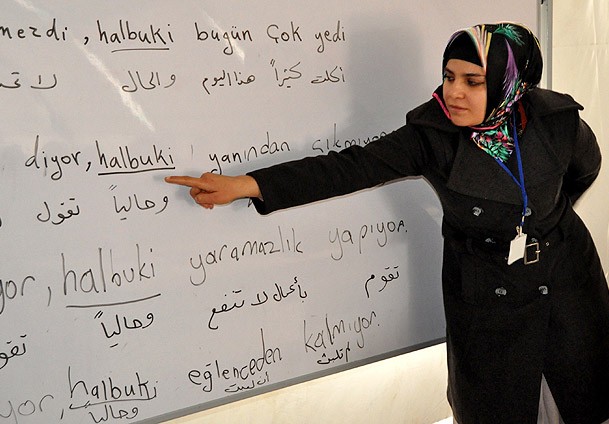 mezdi, halbuki bugün çok yedi
اكلت كثيراً هذا اليوم والحال لا
diyor, halbuki yanından çıkmıyor
وحالياً تقول
yor, halbuki yaramazlık yapıyor.
تقوم بأعمال لا تنفع وحالياً تقو
yor, halbuki eğlenceden kalmıyor.
وحالياً